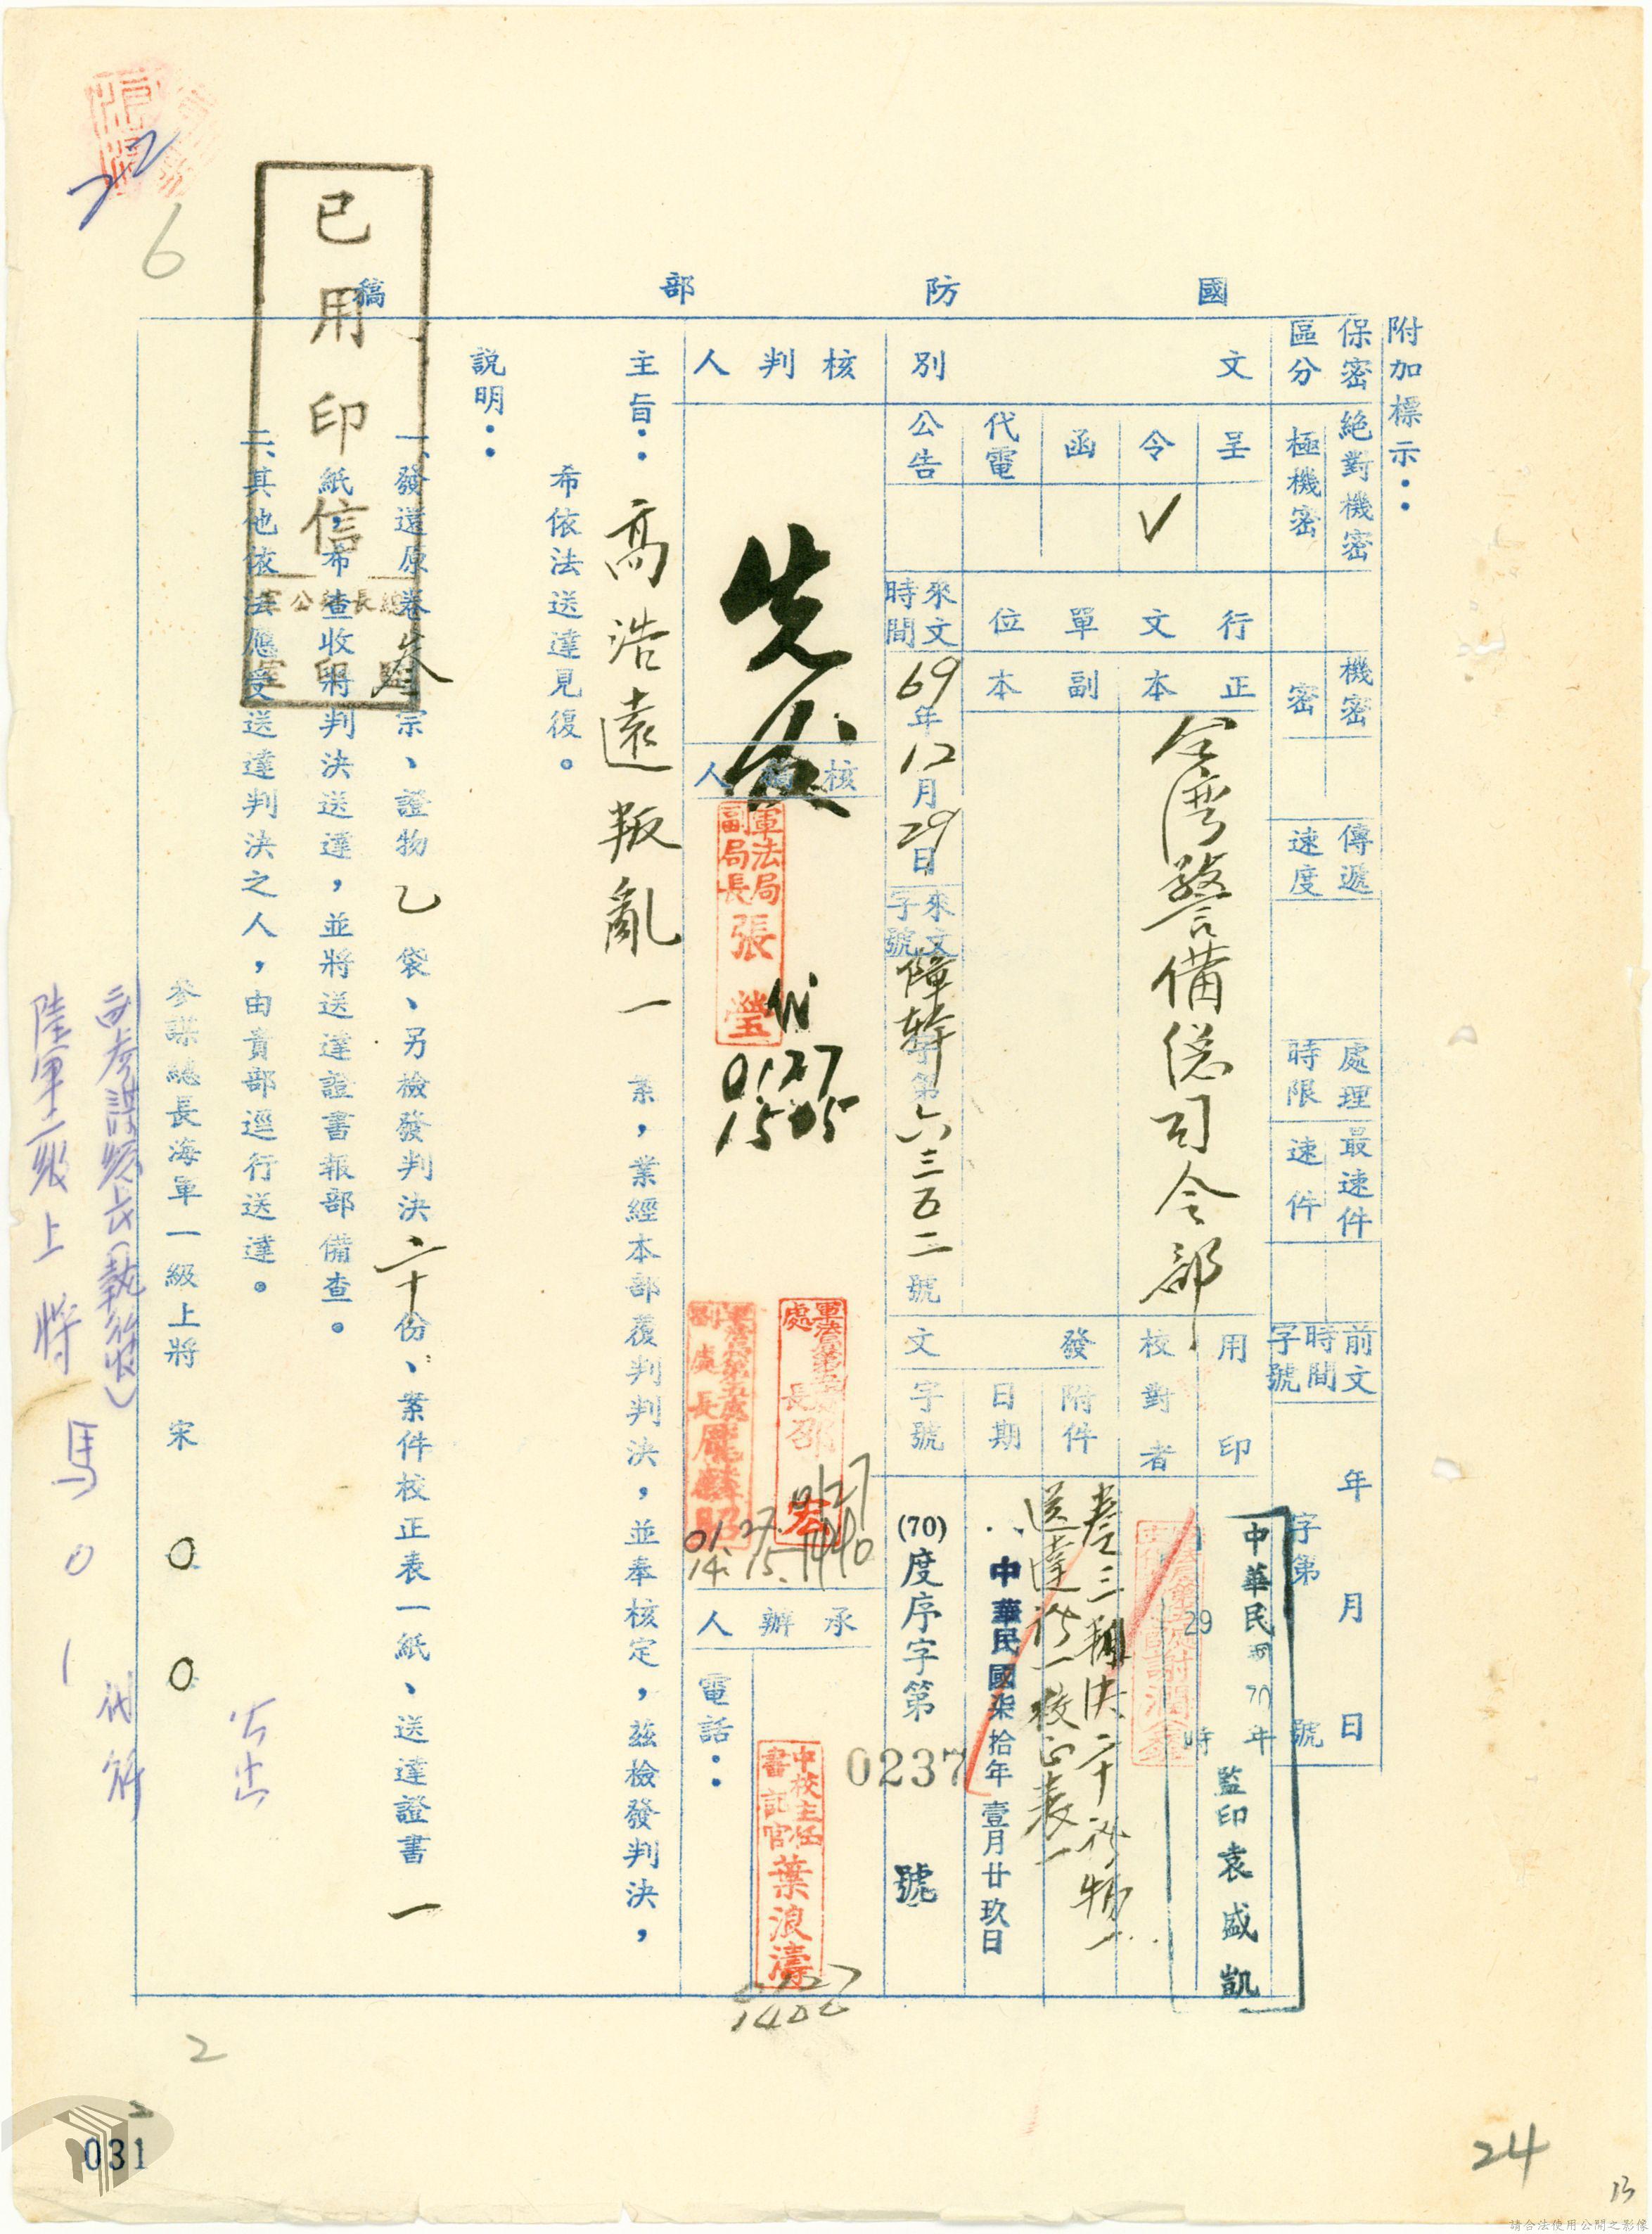 國防部稿
附加標示：
保密區分
絕對機密
極機密
機密
密
傳遞速度
處理時限
最速件
速件
前文時間字號
年 月 日
字第 號
文別
呈
令 ✓
函
代電
公告
行文單位
正本
台灣警備總司令部
副本
來文時間
69年12月29日
來文字號
障幹字第六三五二號
用印
中華民國70年
29
時
監印袁盛凱
校對者
發文
附件
卷三判決二十份物一
送達證一校正表一
日期
中華民國柒拾年壹月廿玖日
字號
(70)度序字第0237號
核判人
核稿人
軍法局副局長張瑩
代
0127
1505
處長邵宏
0127
1440
副處長龐麟昭
01.27.
14.15.
承辦人
中校主任書記官葉浪濤
0127
1400
電話：
主旨：高浩遠叛亂一案，業經本部覆判判決，並奉核定，茲檢發判決，
希依法送達見復。
說明：
一、發還原卷叁宗、證物乙袋、另檢發判決二十份、案件校正表一紙、送達證書一
紙，希查收將判決送達，並將送達證書報部備查。
二、其他依法應受送達判決之人，由貴部逕行送達。
參謀總長海軍一級上將 宋 0 0
公出
副參謀總長(執行官)
陸軍二級上將 馬 0 1 代行
已用印信
6
2
2
031
24
13
請合法使用公開之影像